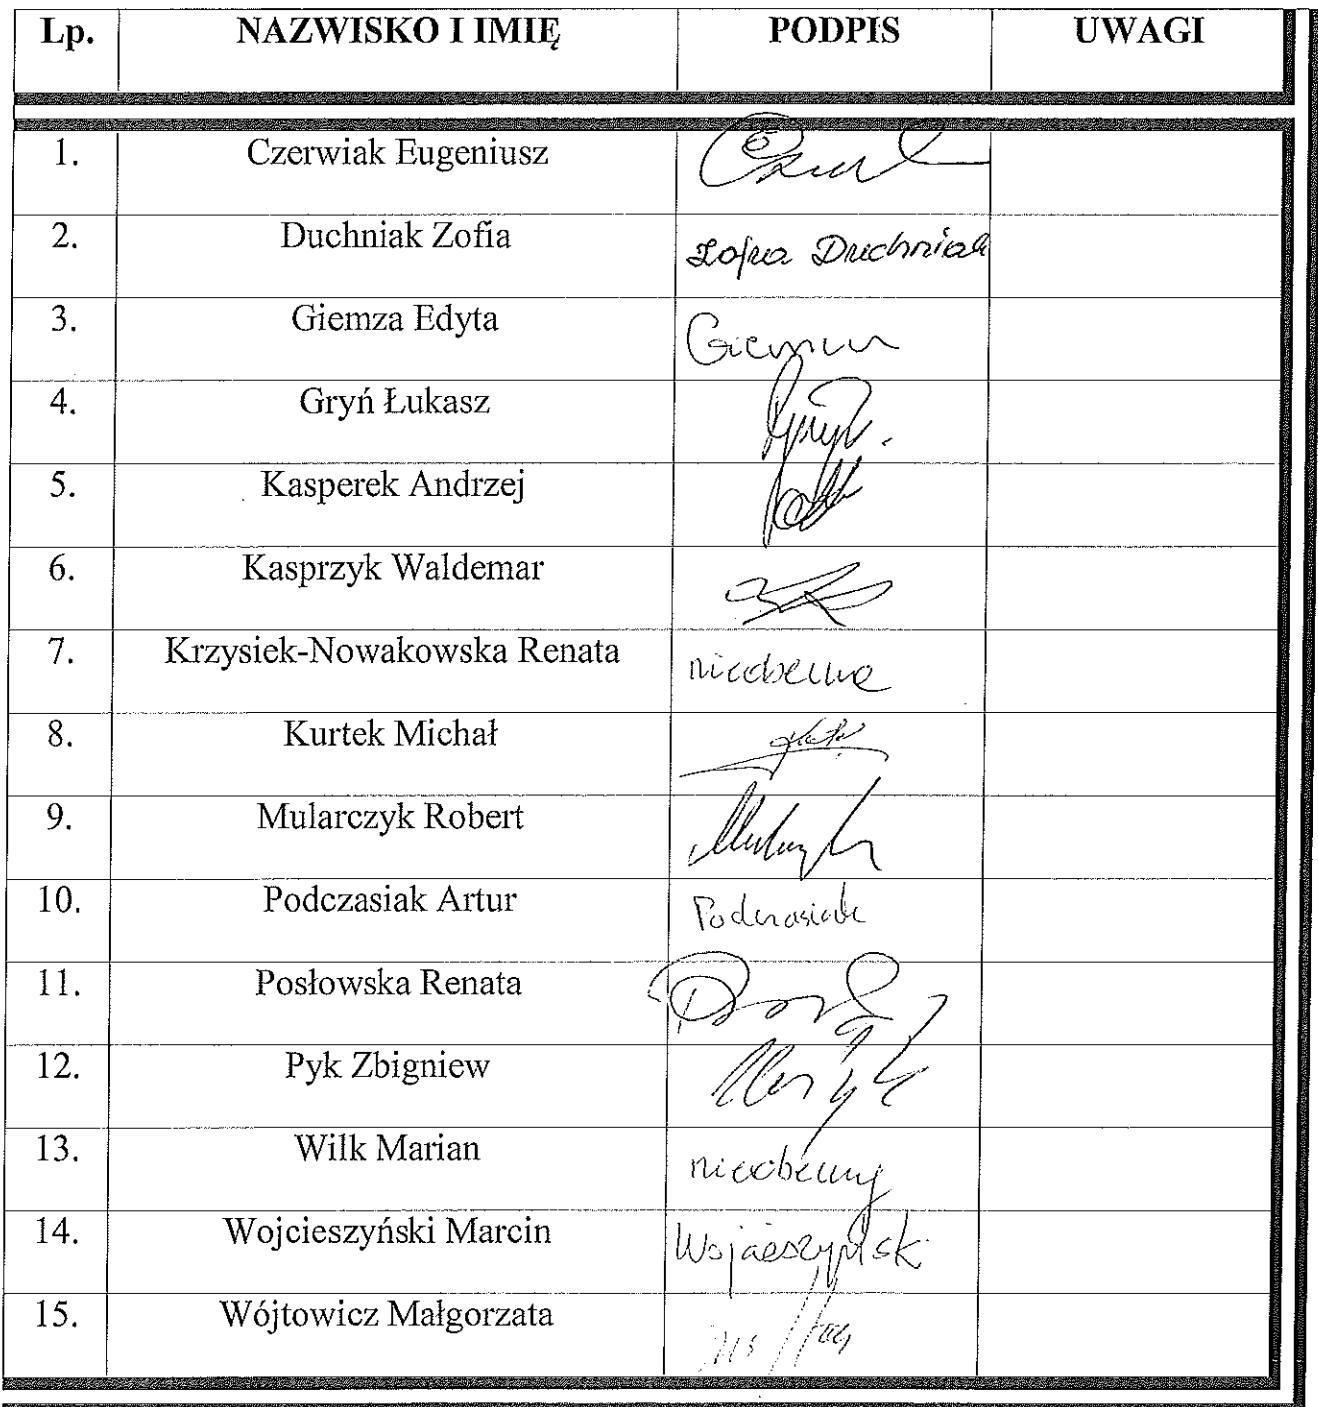 Lp. NAZWISKO I IMIĘ PODPIS UWAGI
1. Czerwiak Eugeniusz
2. Duchniak Zofia Zofia Duchniak
3. Giemza Edyta
4. Gryń Łukasz
5. Kasperek Andrzej
6. Kasprzyk Waldemar
7. Krzysiek-Nowakowska Renata nieobecna
8. Kurtek Michał
9. Mularczyk Robert
10. Podczasiak Artur Podczasiak
11. Posłowska Renata
12. Pyk Zbigniew
13. Wilk Marian nieobecny
14. Wojcieszyński Marcin
15. Wójtowicz Małgorzata